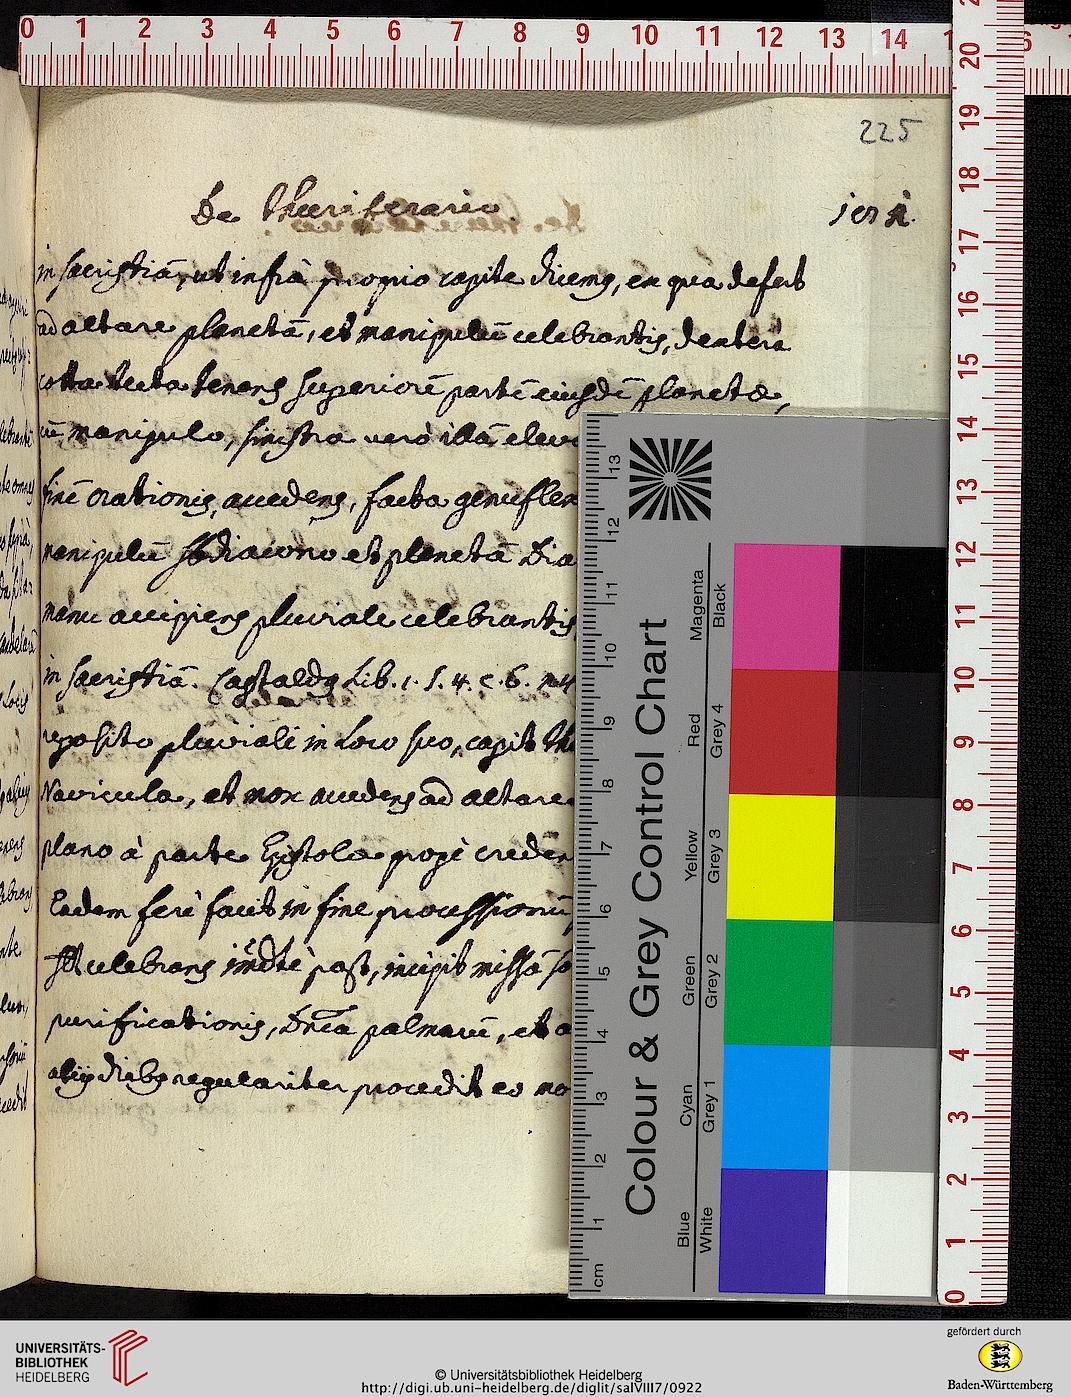 225
De Thuriferario.
in sacristiã, ut infrà proprio capite dicemus, ex qua defert
ad altare planetã, et manipulũ celebrantis, dextera
cotta tecta tenens superiorẽ partẽ eiusdẽ planetæ,
cũ manipulo, sinistra verò illã elev
finẽ orationis, accedens, facta genuflex
manipulũ Sbdiacono et planetã Dia
manu accipiens pluviale celebrantis
in sacristiã. Castaldus Lib. 1. S. 4. c. 6. n. 4
reposito pluviali in loco suo, capit thu
Navicula, et mox accedens ad altare
plano à parte Epistolæ propè creden
Eadem ferè facit in fine processionũ
celebrans imdtè post, incipit missã so
purificationis, Dnĩca palmarũ, et a
alijs diebus regulariter procedit eo mo
0 1 2 3 4 5 6 7 8 9 10 11 12 13 14
20
19
18
17
16
15
14
13
12
11
10
9
8
7
6
5
4
3
2
1
0
Colour & Grey Control Chart
Blue Cyan Green Yellow Red Magenta
White Grey 1 Grey 2 Grey 3 Grey 4 Black
cm 1 2 3 4 5 6 7 8 9 10 11 12 13
UNIVERSITÄTS-
BIBLIOTHEK
HEIDELBERG
© Universitätsbibliothek Heidelberg
http://digi.ub.uni-heidelberg.de/diglit/salVIII7/0922
gefördert durch
Baden-Württemberg